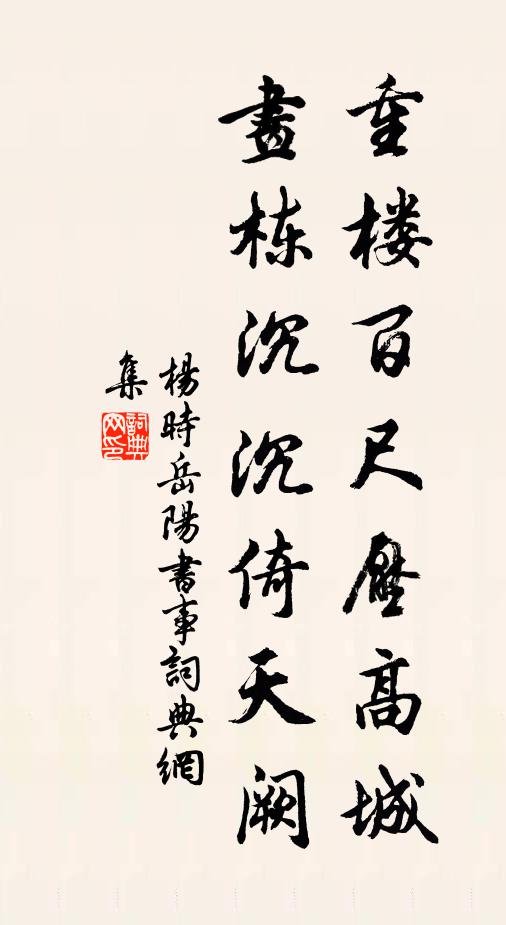 重楼百尺壓高城
畫栋沉沉倚天阙
楊時岳陽書事詞典網
集
詞典
网印